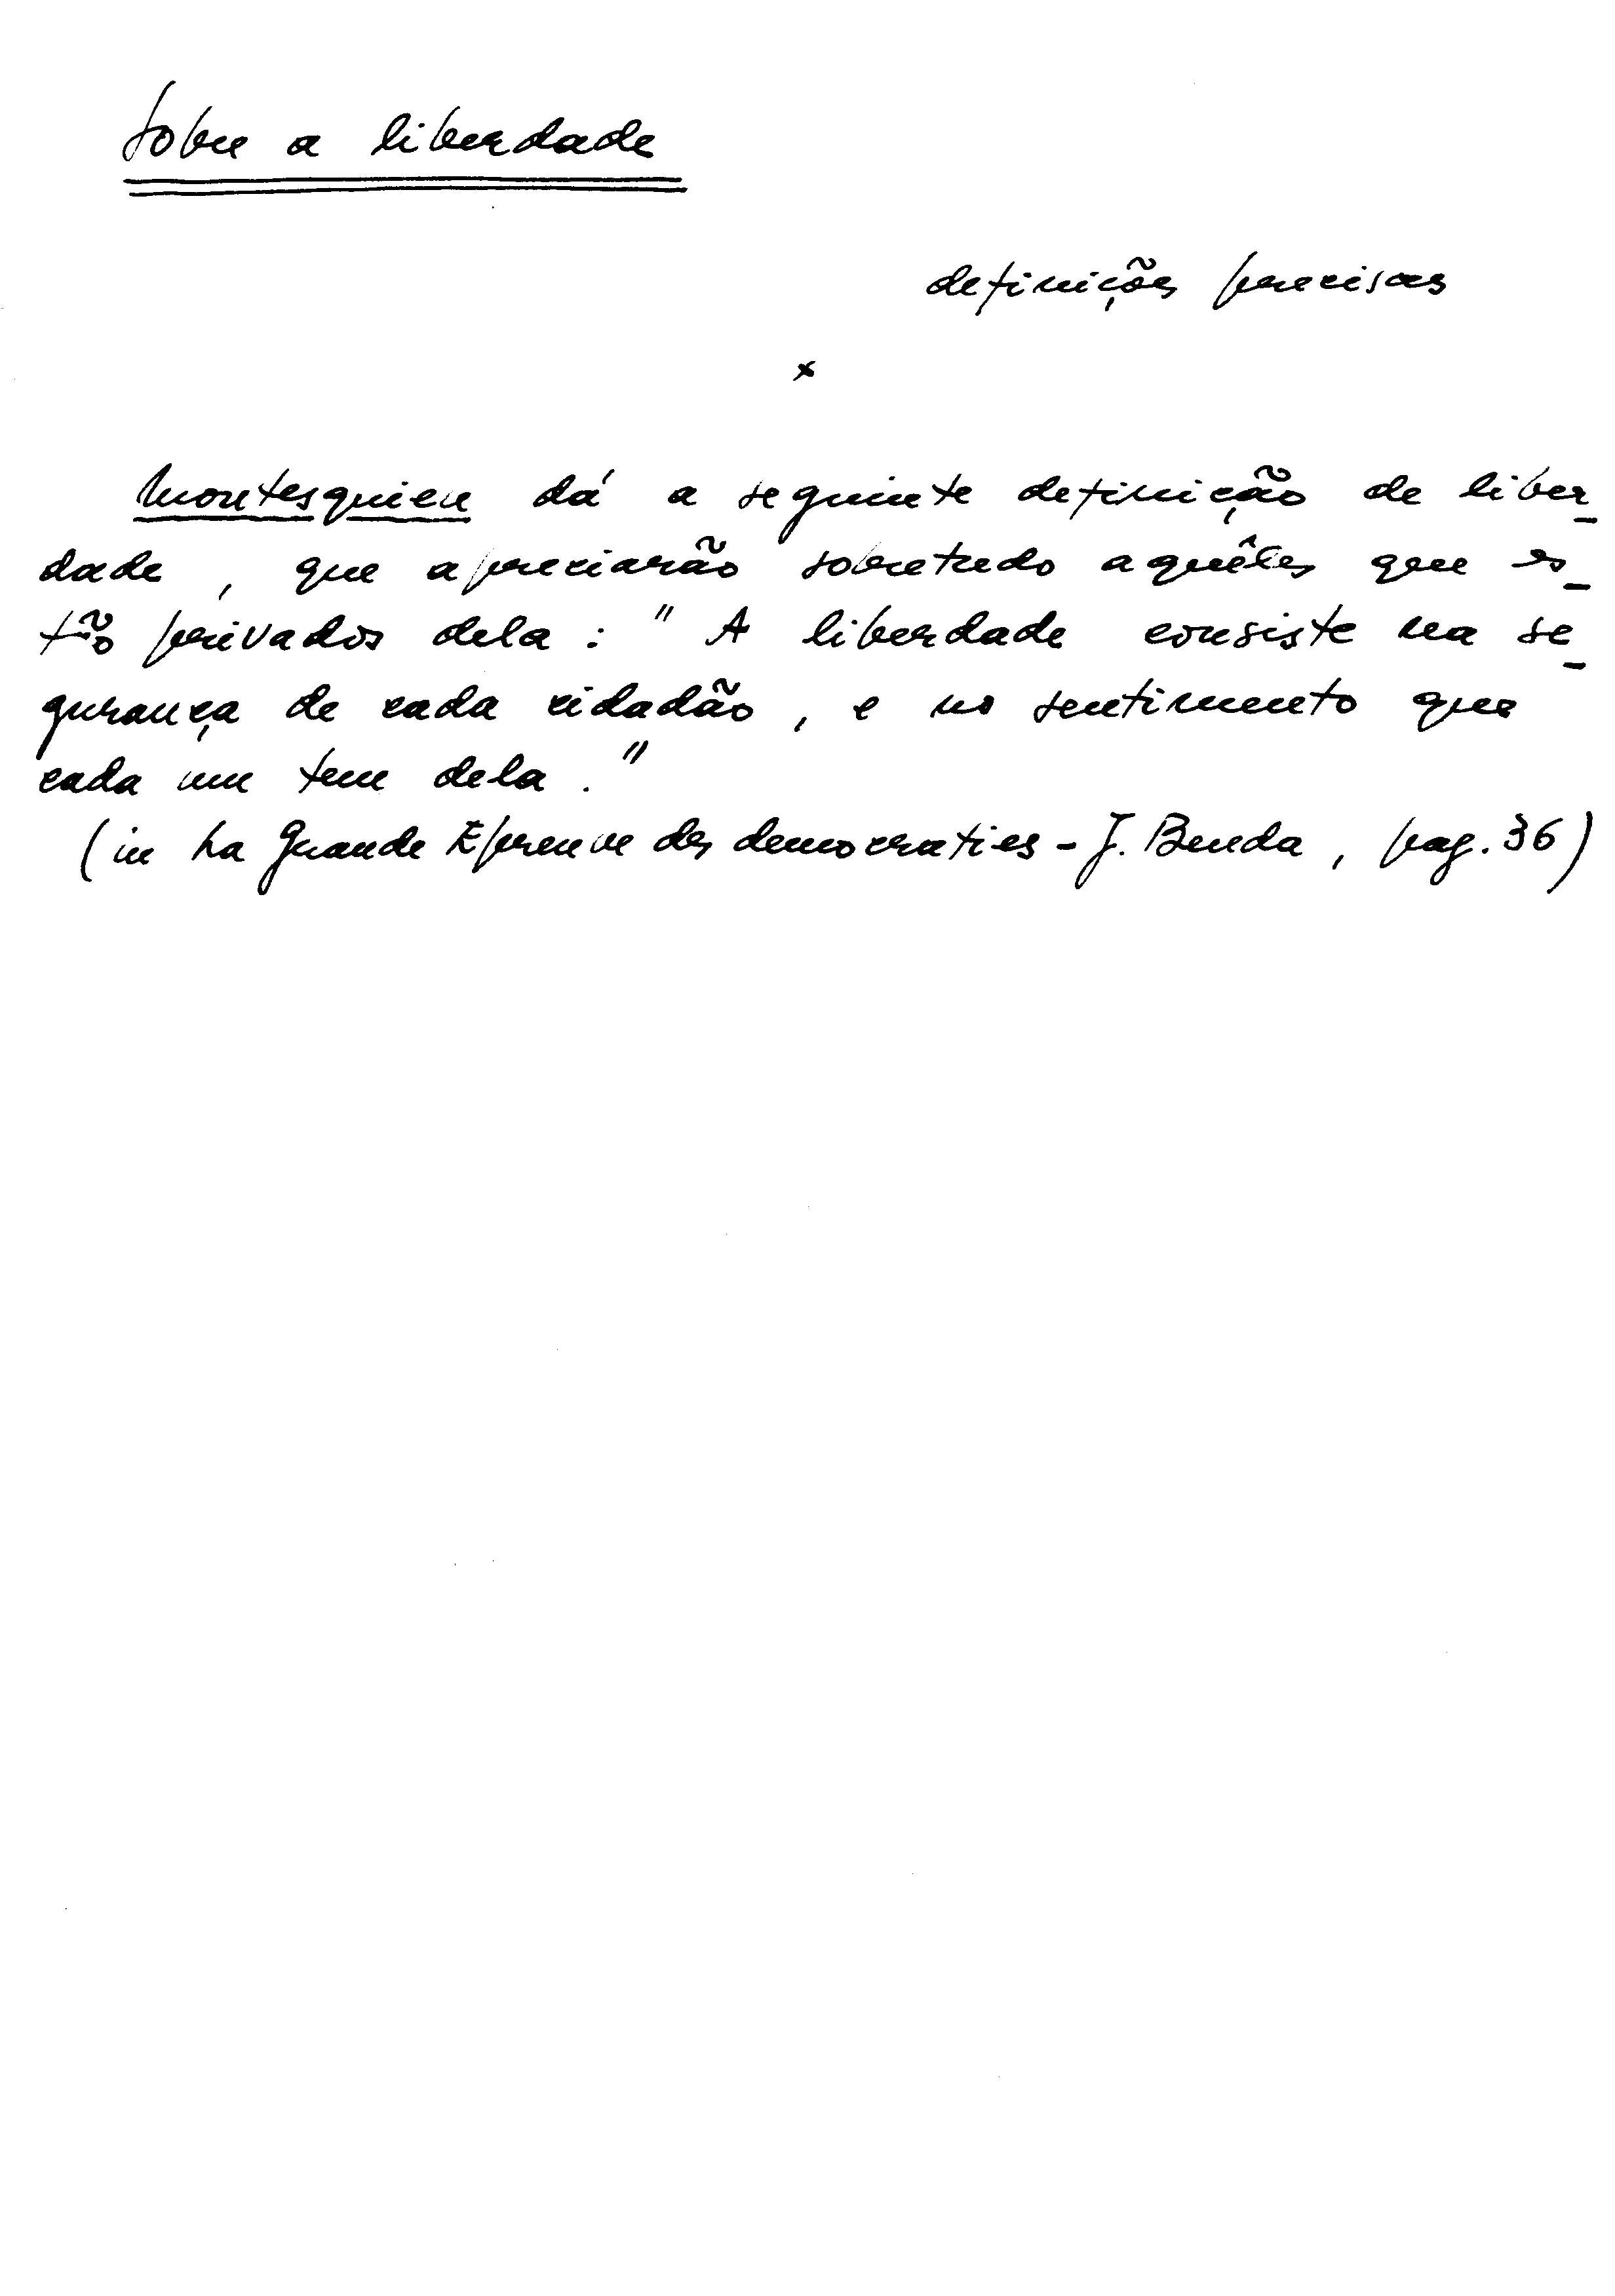 Sobre a liberdade
definições precisas
x
Montesquieu dá a seguinte definição de liber_
dade, que apreciarão sobretudo aquêles que es_
tão privados dela: "A liberdade consiste na se_
gurança de cada cidadão, e no sentimento que
cada um tem dela."
(in La Grande Epreuve des democraties - J. Benda, pag. 36)